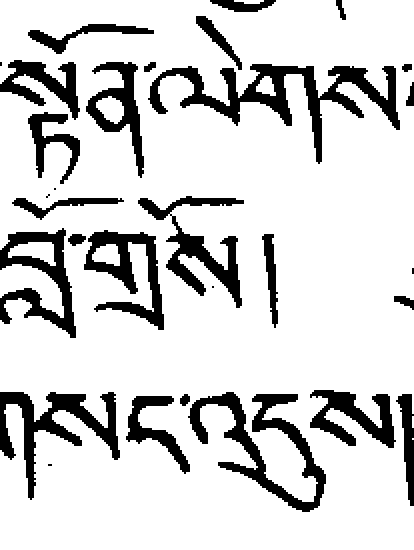 སྟོན་ལེགས་
བློ་གྲོས།
གསང་འདུས།